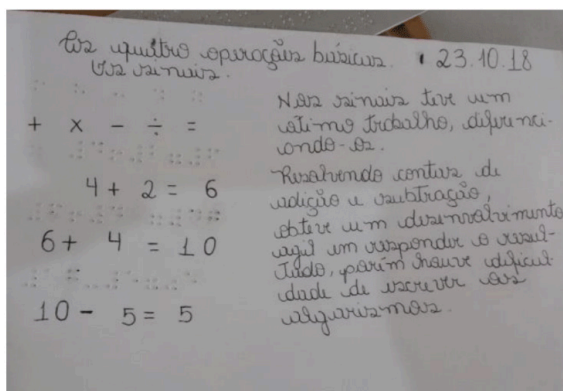 As quatro operações básicas. • 23.10.18
Os sinais.
+ x - ÷ =
4 + 2 = 6
6 + 4 = 10
10 - 5 = 5
Nos sinais teve um
otimo trabalho, diferenci-
ondo-os.
Resolvendo contas de
adição e subtração,
obteve um desenvolvimento
agil em responder o resul-
tado, porém houve dificul-
dade de escrever os
algarismos.